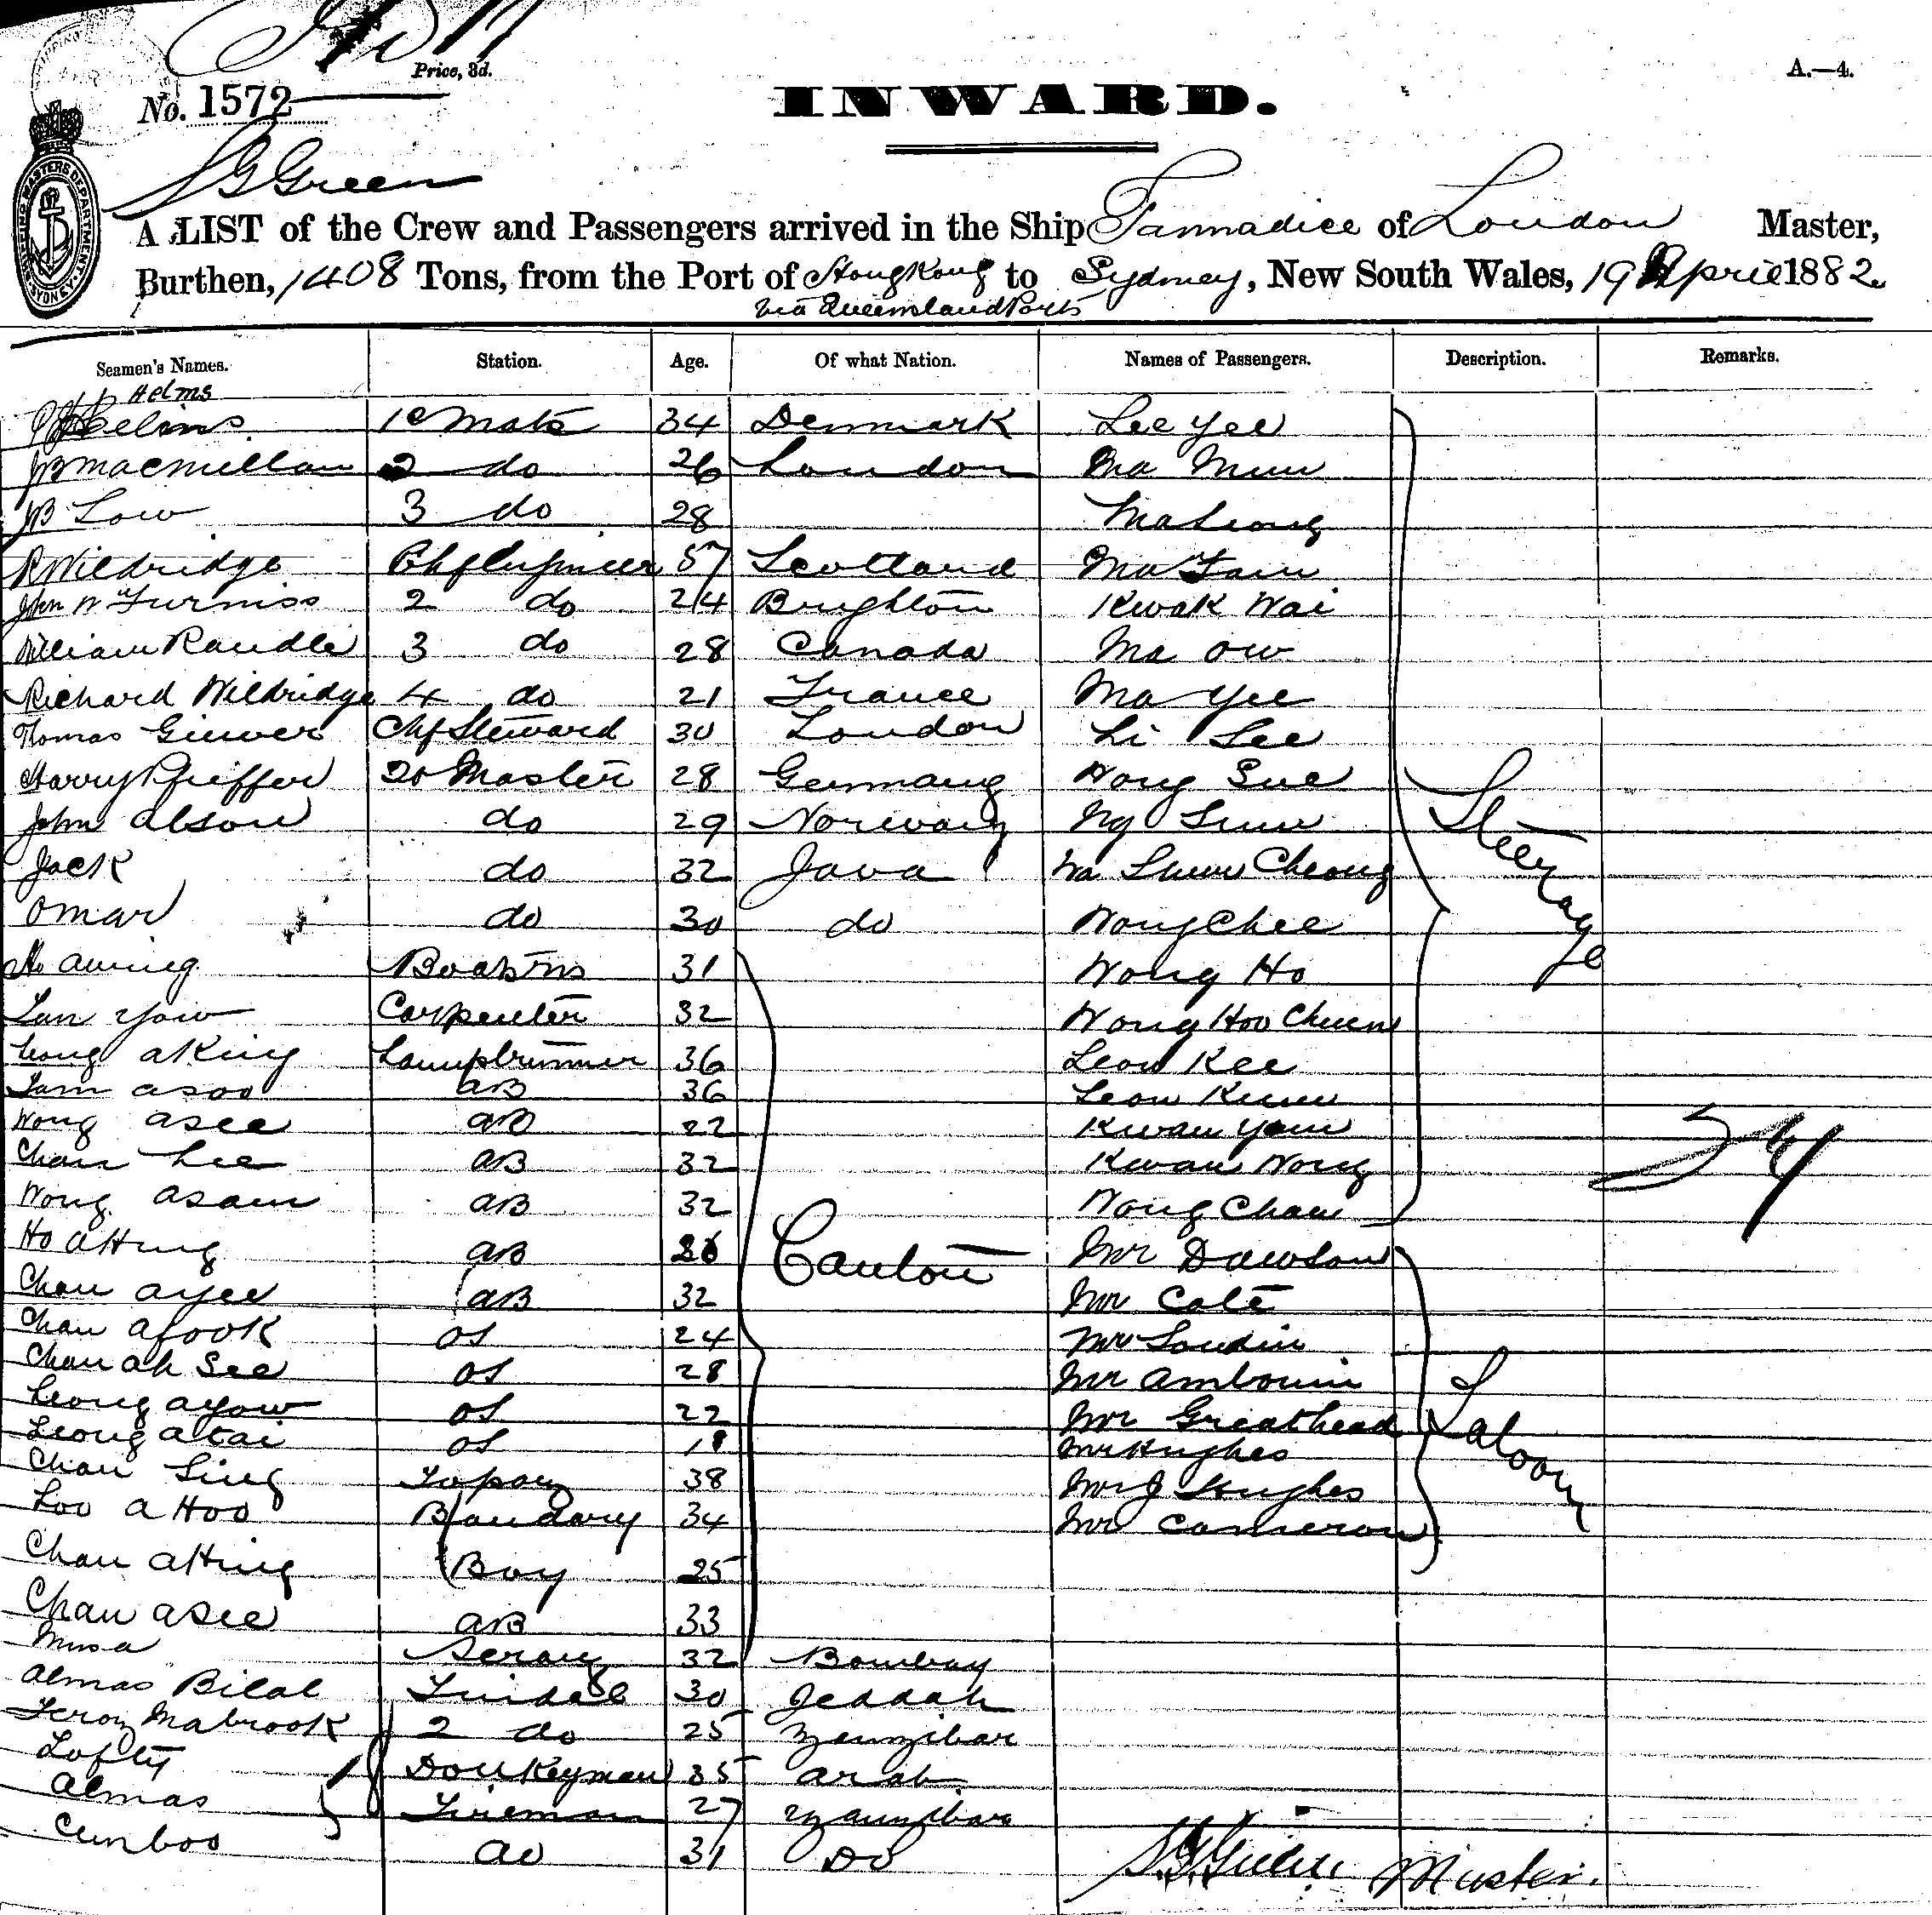 Price, 3d.
A.—4.
No. 1572
INWARD.
SHIPPING MASTERS DEPARTMENT SYDNEY N.S.W.
S G Green
A LIST of the Crew and Passengers arrived in the Ship Fannadice of London Master,
Burthen, 1408 Tons, from the Port of HongKong to Sydney, New South Wales, 19 April 1882
Via Queensland Ports
Seamen's Names. Station. Age. Of what Nation. Names of Passengers. Description. Remarks.
Helms
Helms 1st Mate 34 Denmark Lee Yee
JB Macmillan 2 do 26 London Ma Mun
JB Low 3 do 28 Ma Leong
R Wildridge Chf Engineer 57 Scotland Ma Tam
John W Furniss 2 do 24 Brighton Kwak Wai
William Randle 3 do 28 Canada Ma Ow
Richard Wildridge 4 do 21 France Ma Yee
Thomas Chf Steward 30 London Li See
Harry Pfeiffer Qr Master 28 Germany Hong Sue
John Olson do 29 Norway Ng Sum
Jack do 32 Java Cheong
Omar do 30 do Wong Chee
Ho Boatsns 31 Wong Ho
Yow Carpenter 32 Wong Hoo Chuen
Leong aKing Lamptrimmer 36 Leon Kee
asoo aB 36 Leon
Wong asee aB 22 Kwan
Chan Lee aB 32 Kwan Wong
Wong asam aB 32 Wong Chaw
Steerage
54
Ho aHing aB Canton Mr Dawson
Chan ayee aB 32 Mr Cole
Chan afook os 24 Mr
Chan ah See os 28 Mr
Leong ayow os 22 Mr Greathead
Leong atai os 18 Mr Hughes
Chan Sing Topay 38 Mr J Hughes
Loo aHoo Bandary 34 Mr Cameron
Saloon
Chan aHing Boy 25
Chan asee aB 33
Musa Serang 32 Bombay
almas Bilal Tindal 30 Jeddah
Feroz Mabrook 2 do 25 Zanzibar
Lofty Donkeyman 35 arab
almas Fireman 27 Zanzibar
Cumboo do 31 Do
S.G. Green Master.